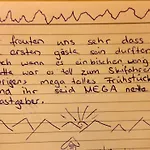 freuten uns sehr dass
ersten gäste ein durften
ch wenn es ein bischen wenig
tte war so toll zum Skifahren
origen mega tolles Frühstück
nd ihr seid MEGA nette
astgeber.